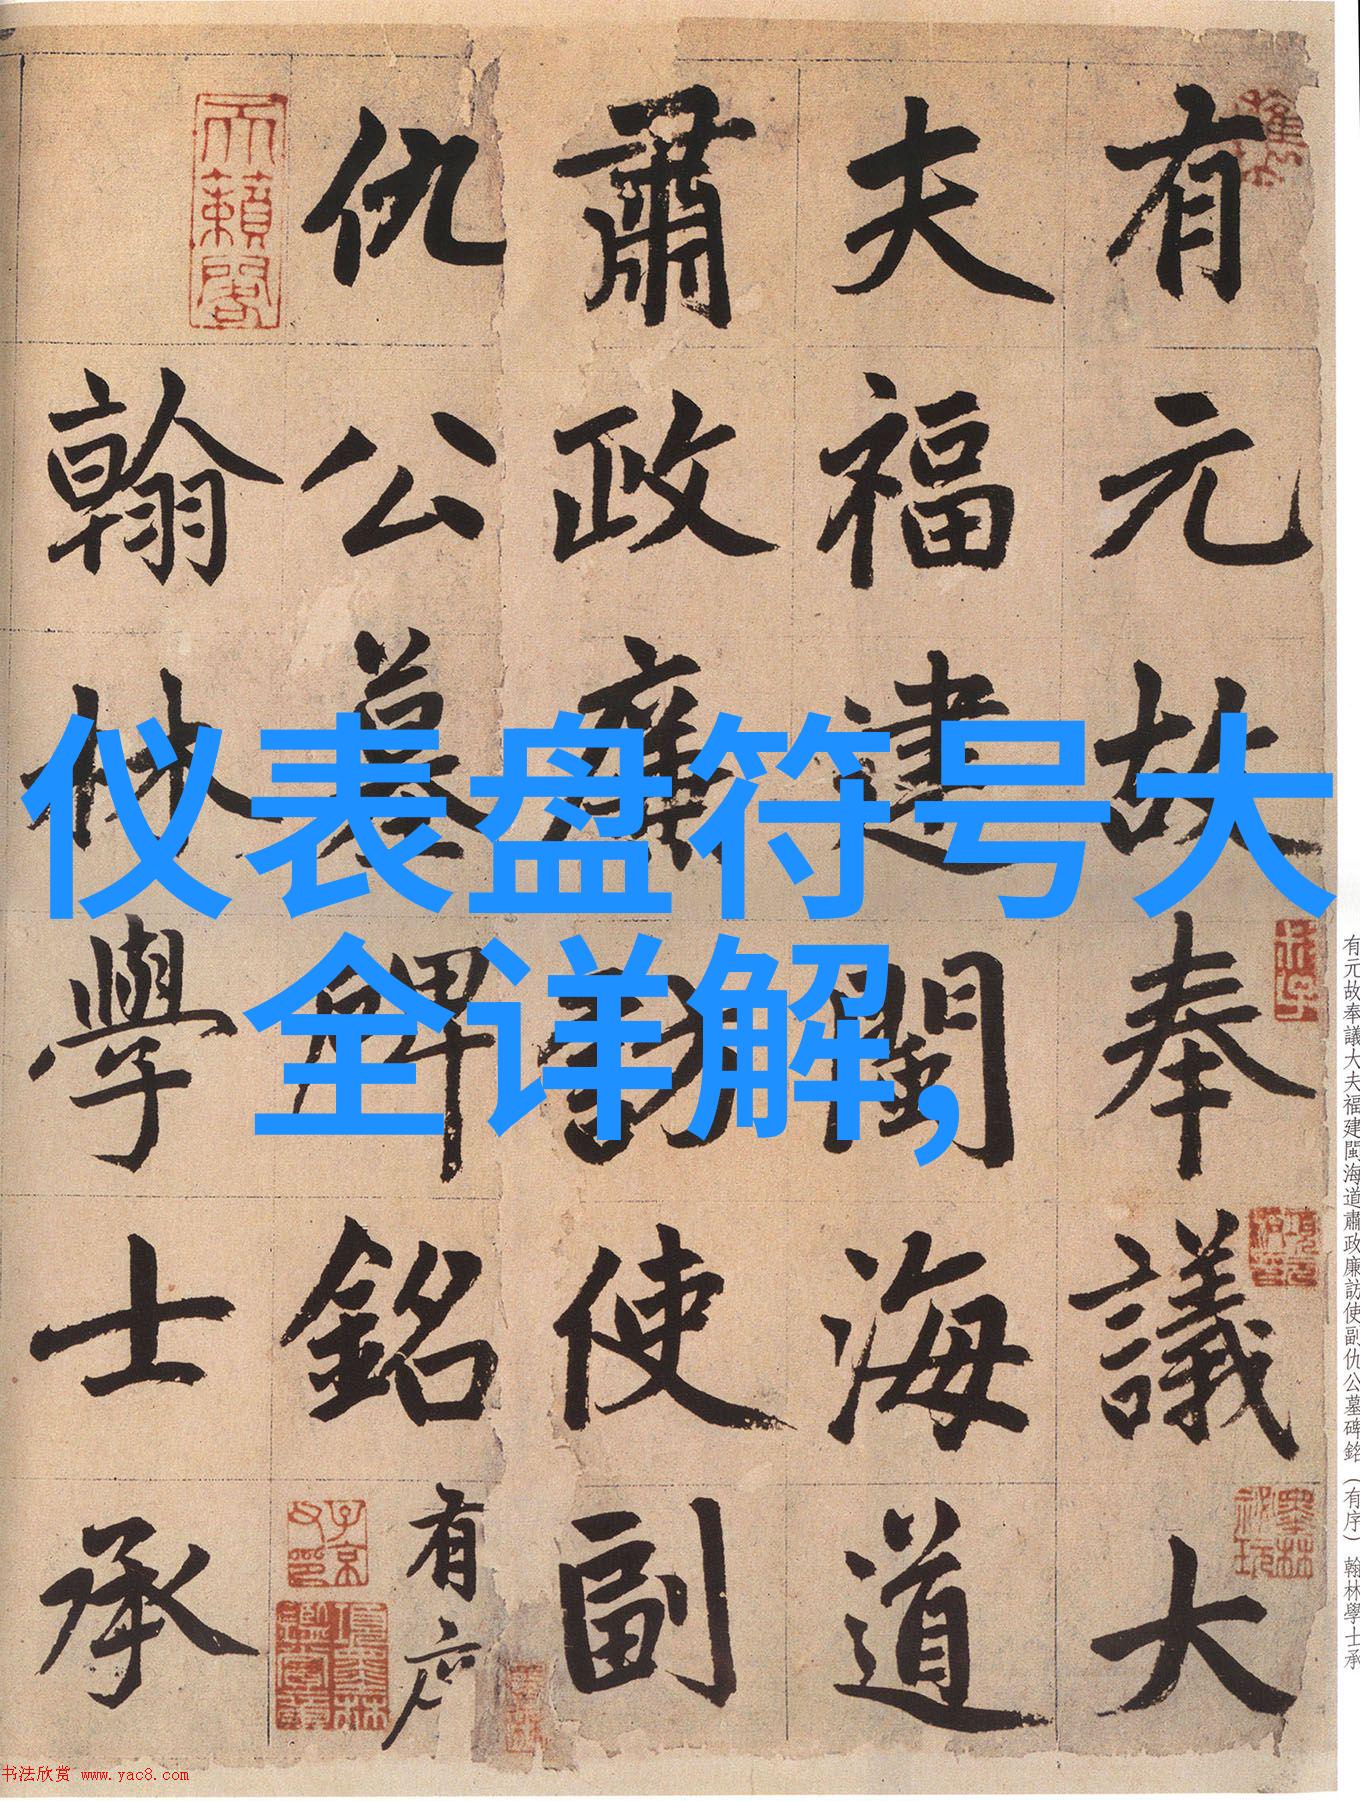 仪表盘符号大
全详解,
有元故奉議大
夫福建閩海道
肅政廉訪使副
仇公墓碑銘有序
翰林學士承
天籟閣
子京父印
墨林祕玩
有元故奉議大夫福建閩海道肅政廉訪使副仇公墓碑銘（有序）翰林學士承
书法欣赏 www.yac8.com